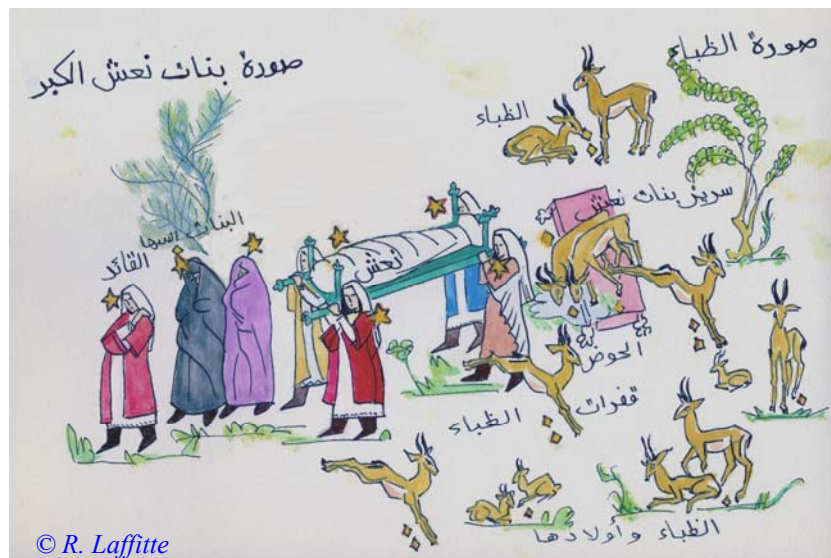 صورة بنات نعش الكبر
صورة الظباء
الظباء
سرير بنات نعش
البنات
القائد
نعش
الحوض
قفزات الظباء
الظباء وأولادها
© R. Laffitte